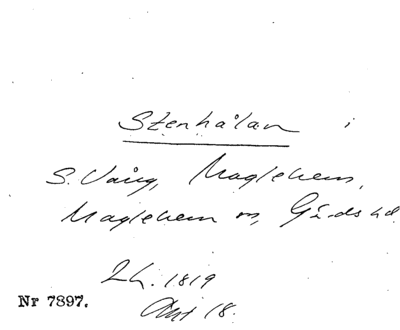 Stenhålan i
S. Vång, Maglehem,
Maglehem sn, Gärds hd.
Lh. 1819
Akt 18.
Nr 7897.